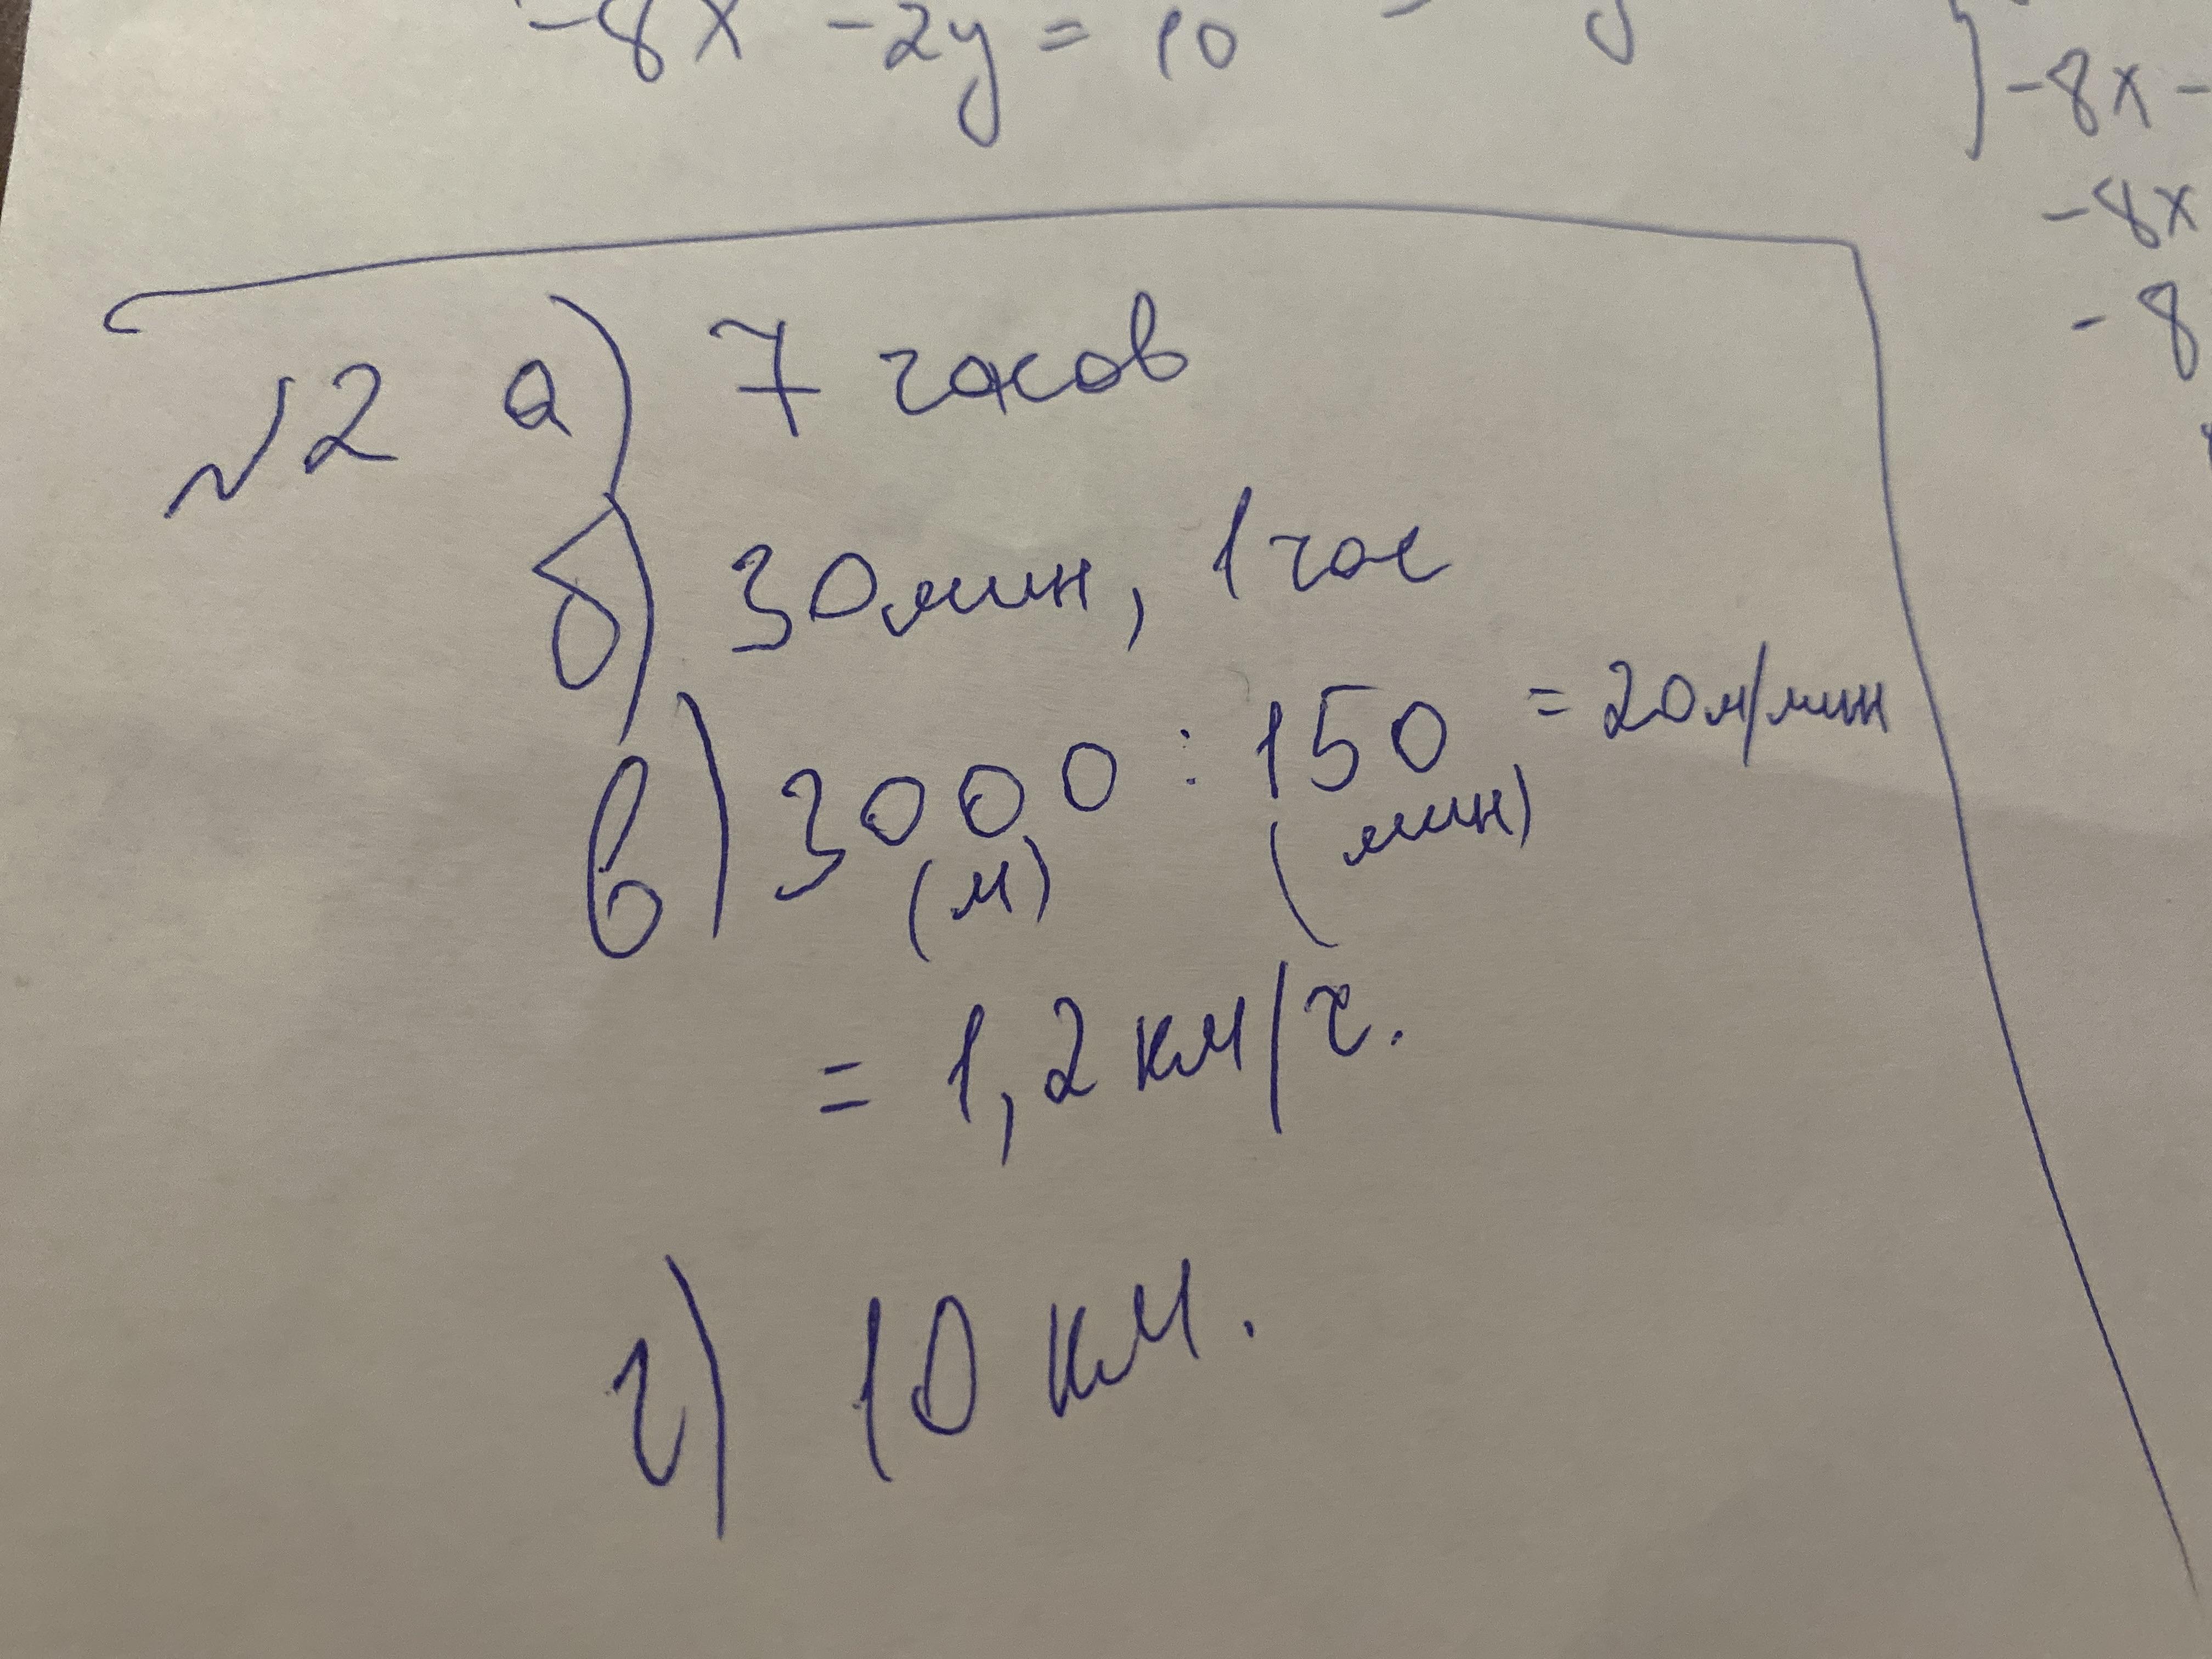 -8x -2y = 10
-8x -
-8x
-8
№2 а) 7 часов
б) 30мин, 1 час
в) 3000 : 150 = 20м/мин
(м) (мин)
= 1,2 км/ч.
г) 10 км.